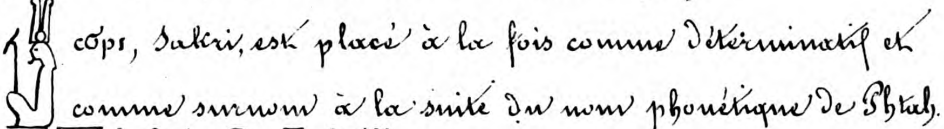 ⲥⲟⲕⲣⲓ, Sakri, est placé à la fois comme déterminatif et
comme surnom à la suite du nom phonétique de Phtah.